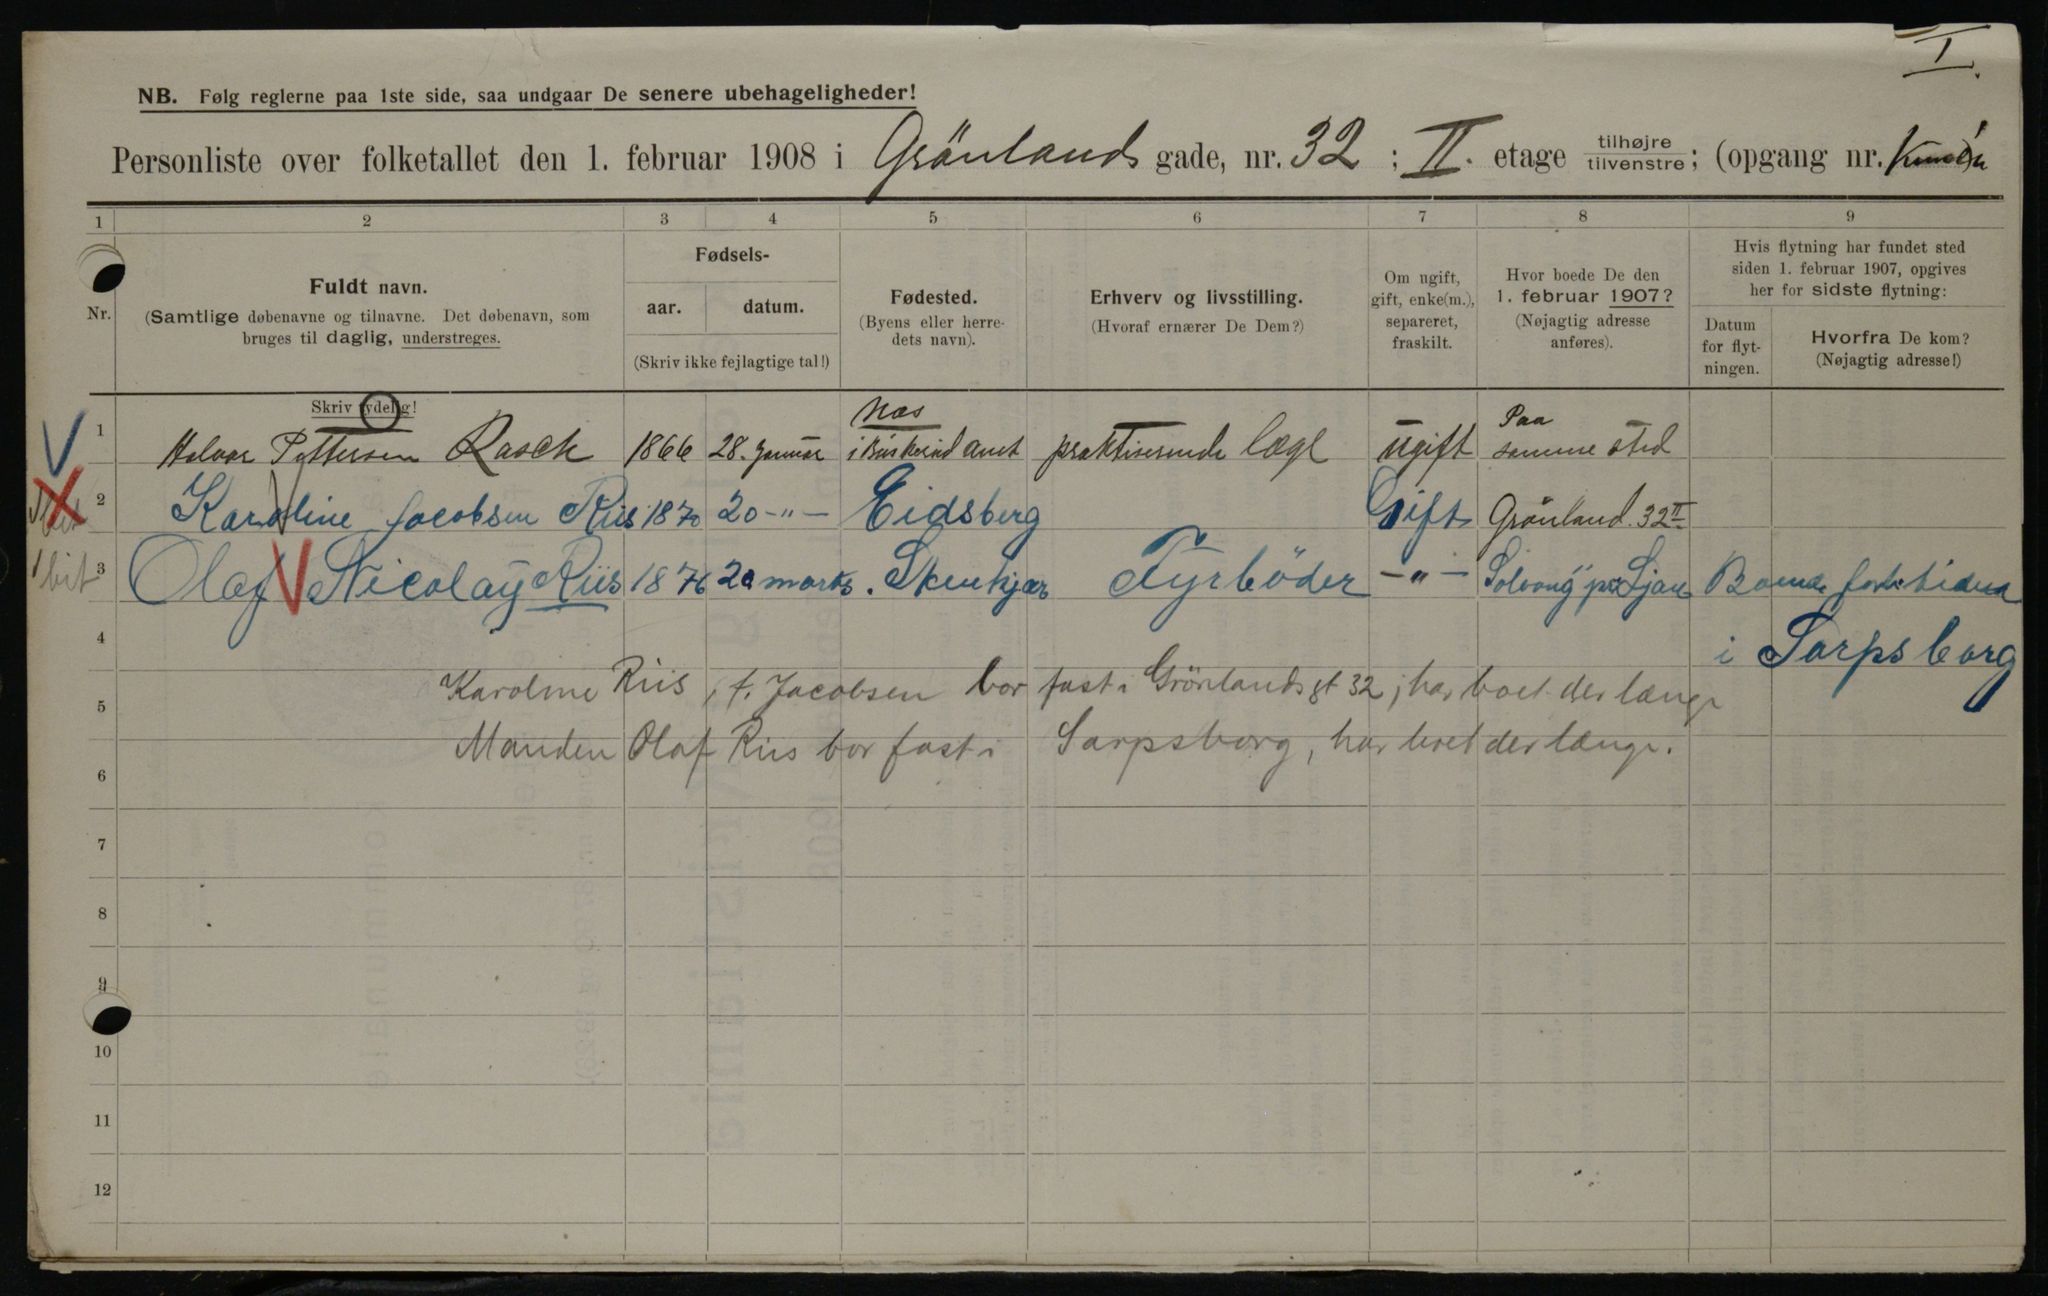 I.
NB. Følg reglerne paa 1ste side, saa undgaar De senere ubehageligheder!
Personliste over folketallet den 1. februar 1908 i Grönlands gade, nr. 32 ; II. etage tilhøjre tilvenstre ; (opgang nr.
1 2 3 4 5 6 7 8 9
Nr.
Fuldt navn.
(Samtlige døbenavne og tilnavne. Det døbenavn, som
bruges til daglig, understreges.
Skriv tydelig!
Fødsels-
aar. datum.
(Skriv ikke fejlagtige tal!)
Fødested.
(Byens eller herre-
dets navn).
Erhverv og livsstilling.
(Hvoraf ernærer De Dem?)
Om ugift,
gift, enke(m.),
separeret,
fraskilt.
Hvor boede De den
1. februar 1907?
(Nøjagtig adresse
anføres).
Hvis flytning har fundet sted
siden 1. februar 1907, opgives
her for sidste flytning:
Datum
for flyt-
ningen.
Hvorfra De kom?
(Nøjagtig adresse!)
1 Halvor Pettersen Rasck 1866 28. Januar Næs i Buskerud amt praktiserende læge ugift Paa samme sted
2 Karoline Jacobsen Riis 1870 20 -"- Eidsberg Gift Grönland. 32 II
bit 3 Olaf Nicolaÿ Riis 1876 20 marts. Skenkjær Fyrböder -"- Solvang pr Ljan Boende fortiden
4 i Sarpsborg
5 Karoline Riis, f. Jacobsen bor fast i Grönlandsgt 32, har boet der længe
6 Manden Olaf Riis bor fast i Sarpsborg, har boet der længe.
7
8
9
10
11
12